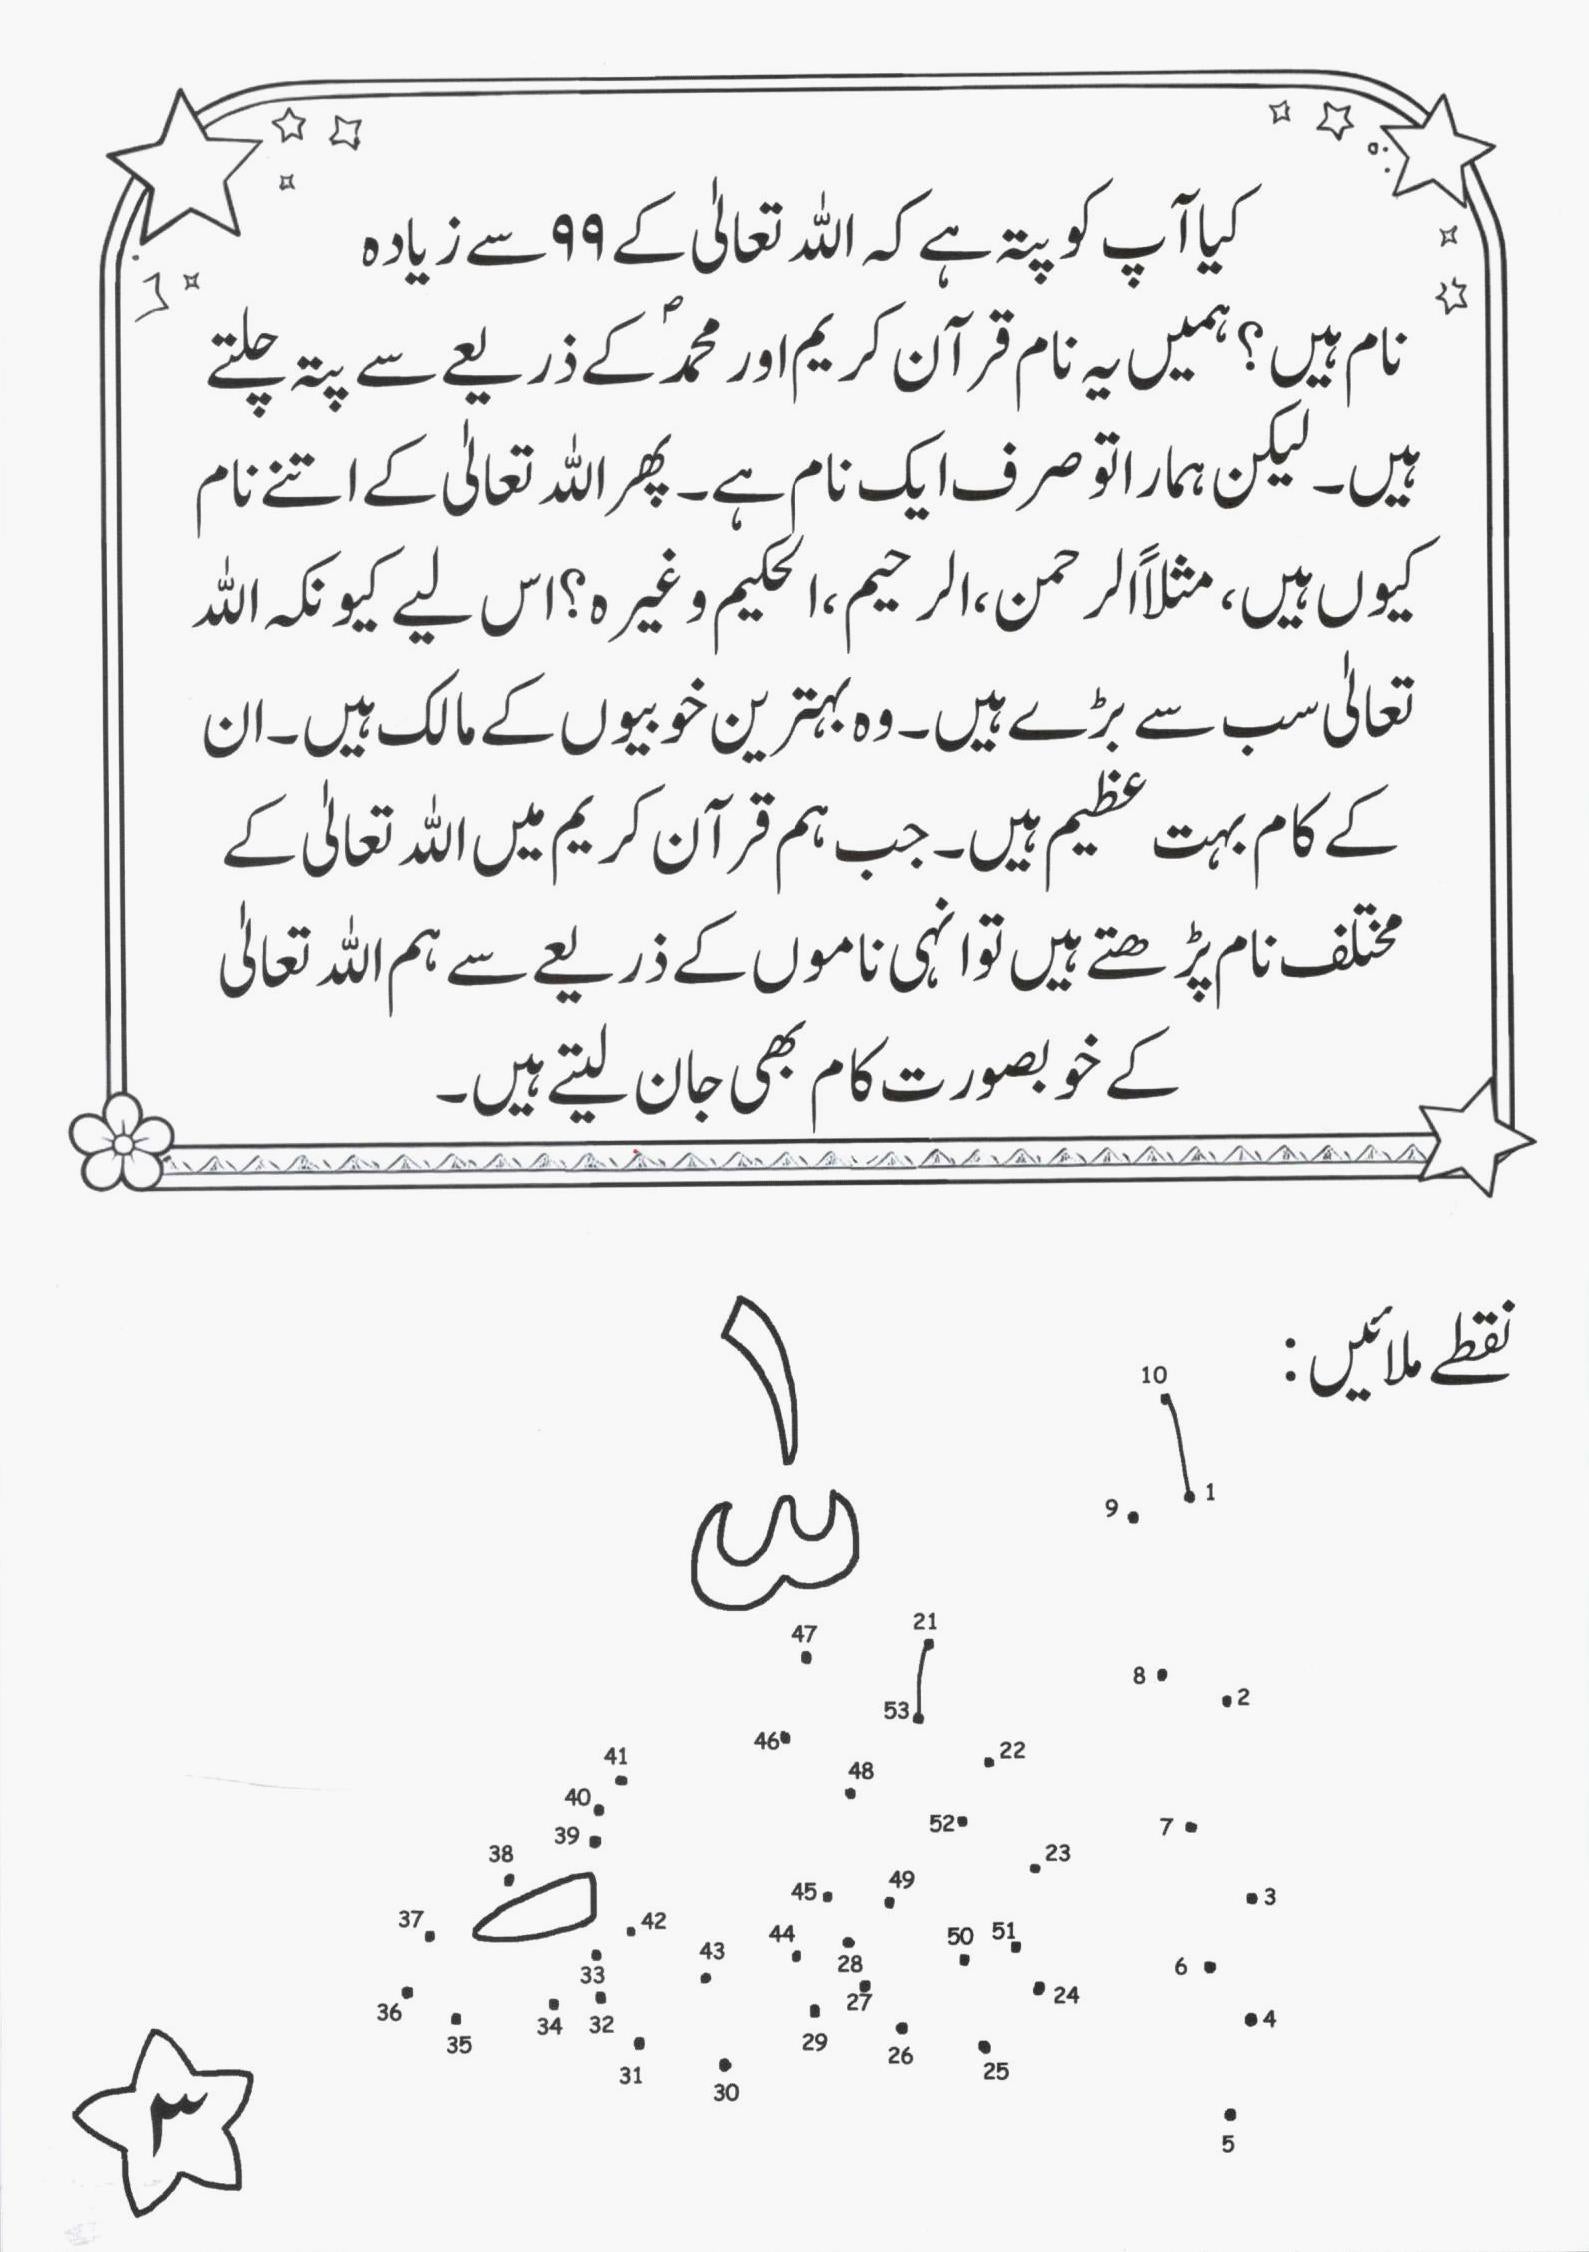 کیا آپ کو پتہ ہے کہ اللہ تعالیٰ کے ۹۹ سے زیادہ
نام ہیں؟ ہمیں یہ نام قرآن کریم اور محمدؐ کے ذریعے سے پتہ چلتے
ہیں۔ لیکن ہمارا تو صرف ایک نام ہے۔ پھر اللہ تعالیٰ کے اتنے نام
کیوں ہیں، مثلاً الرحمن، الرحیم، الحکیم وغیرہ؟ اس لیے کیونکہ اللہ
تعالیٰ سب سے بڑے ہیں۔ وہ بہترین خوبیوں کے مالک ہیں۔ ان
کے کام بہت عظیم ہیں۔ جب ہم قرآن کریم میں اللہ تعالیٰ کے
مختلف نام پڑھتے ہیں تو انہی ناموں کے ذریعے سے ہم اللہ تعالیٰ
کے خوبصورت کام بھی جان لیتے ہیں۔
نقطے ملائیں:
10
1
9
21
47
8
2
53
46
22
41
48
40
52
7
39
23
38
49
45
3
37
42
44
50
51
43
28
6
33
24
27
36
34
32
4
35
29
26
31
25
30
5
۳